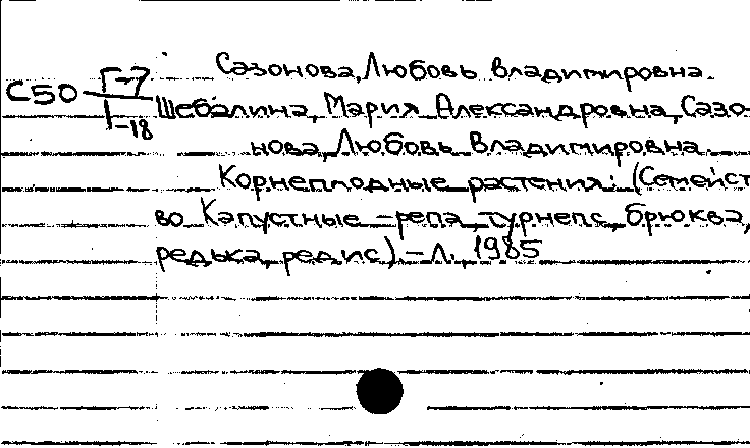 Сазонова, Любовь Владимировна.
С50 Г-7
1-18
Шебалина, Мария Александровна, Сазо-
нова, Любовь Владимировна.
Корнеплодные растения: (Семейст
во Капустные - репа, турнепс, брюква,
редька, редис). - Л., 1985